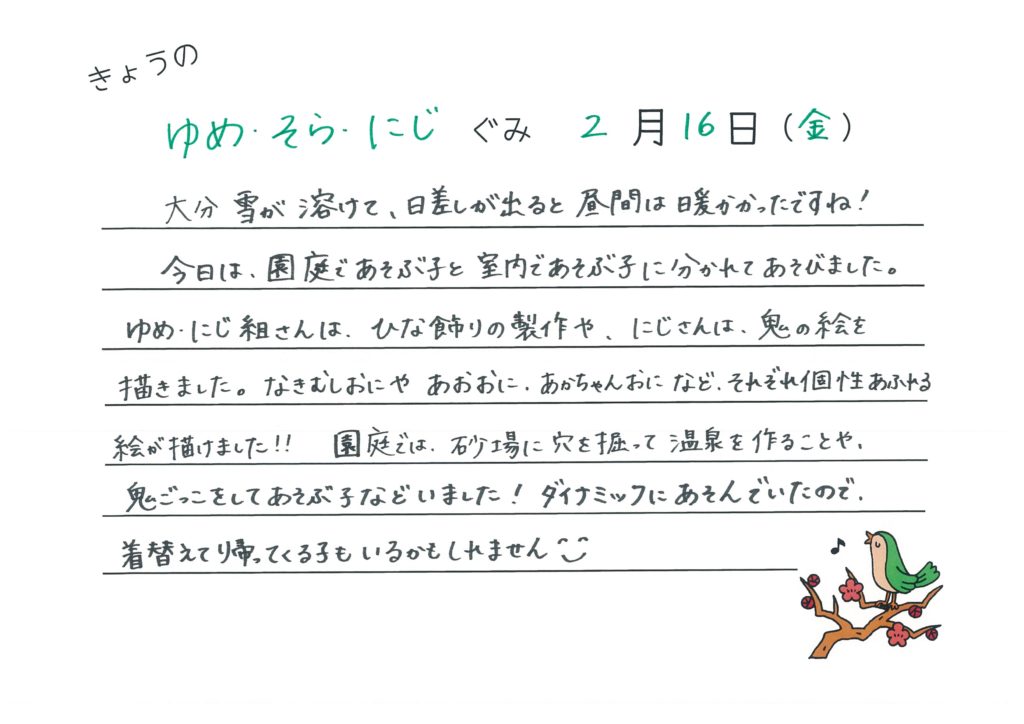 きょうの
ゆめ・そら・にじ ぐみ 2月16日(金)
大分 雪が 溶けて、日差しが出ると 昼間は 暖かかったですね!
今日は、園庭であそぶ子と 室内であそぶ子に分かれて あそびました。
ゆめ・にじ組さんは、ひな飾りの製作や、にじさんは、鬼の絵を
描きました。なきむしおにや あおおに、あかちゃんおに など、それぞれ個性あふれる
絵が描けました!! 園庭では、砂場に 穴を掘って 温泉を作ることや、
鬼ごっこをしてあそぶ子などいました! ダイナミックにあそんでいたので、
着替えて帰ってくる子もいるかもしれません